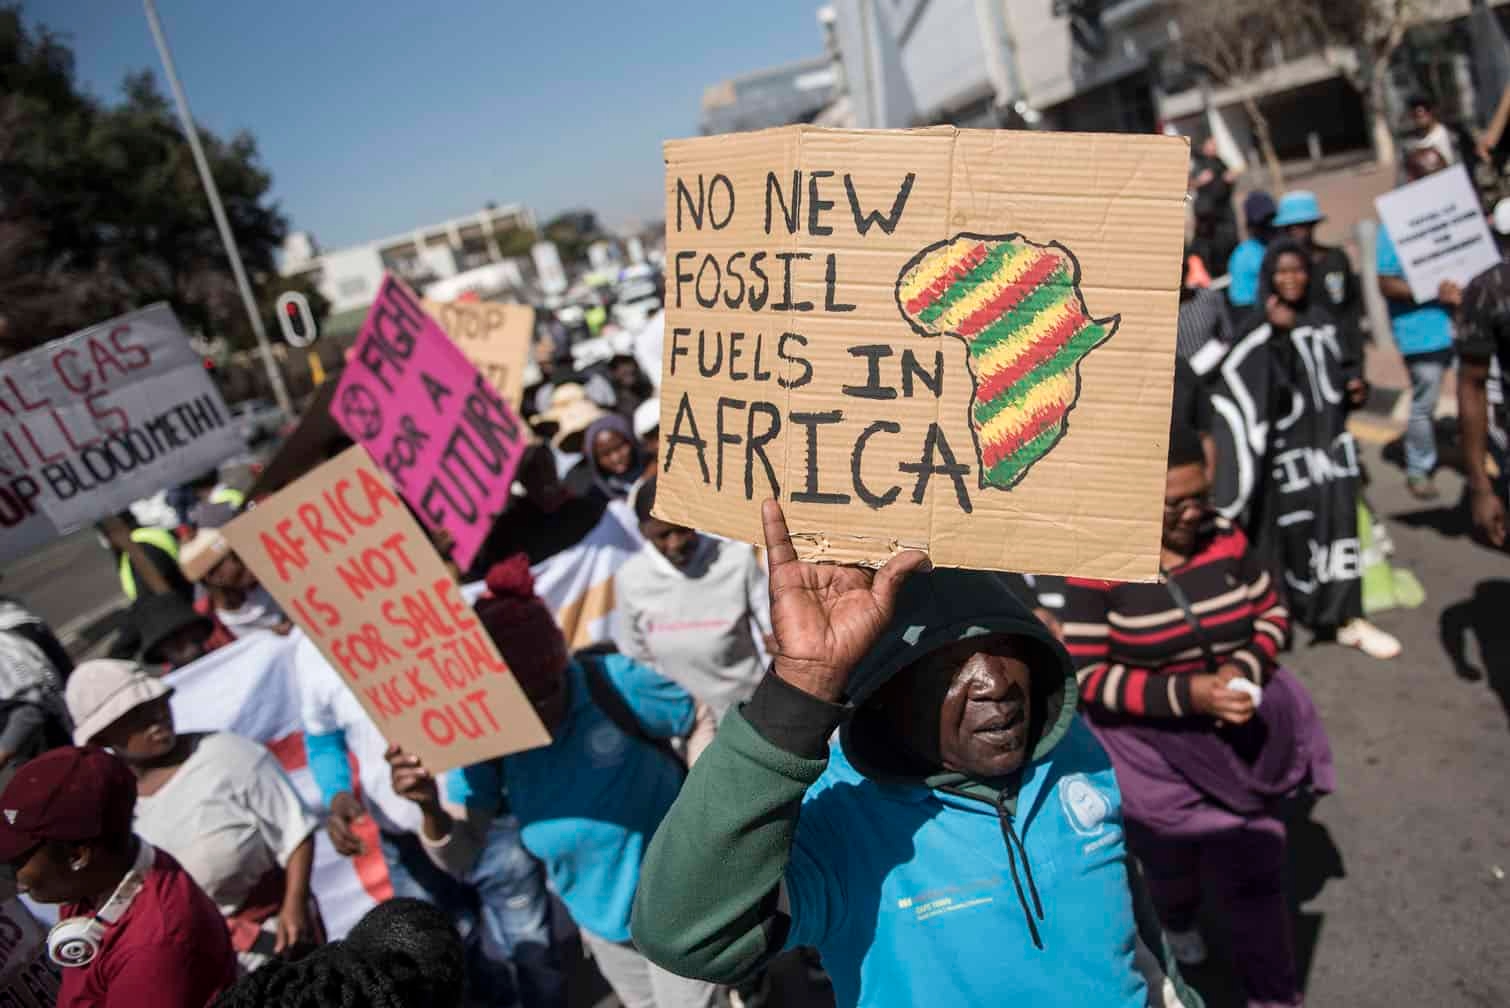 NO NEW
FOSSIL
FUELS IN
AFRICA
FIGHT
FOR A
FUTURE
STOP
AFRICA
IS NOT
FOR SALE
KICK TOTAL
OUT
GAS
BLOOD METH!
CAPE TOWN